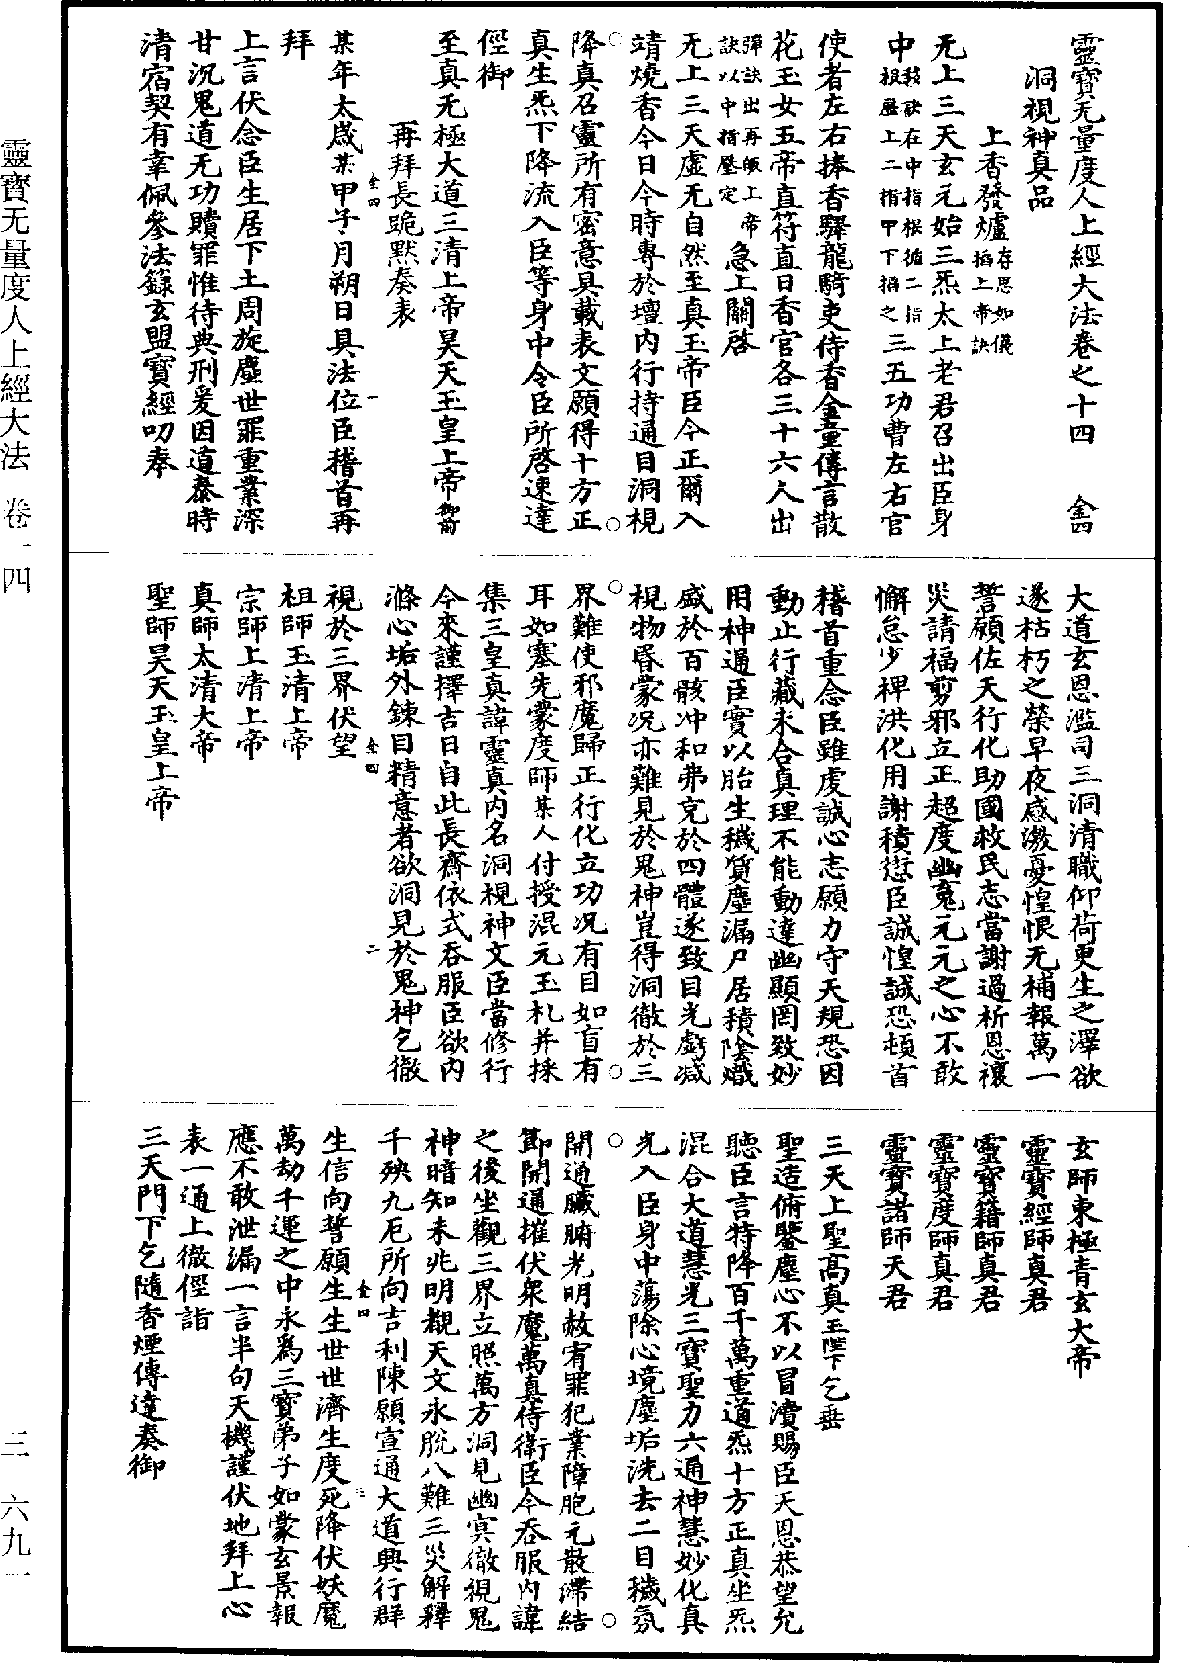 靈寶无量度人上經大法卷之十四　金四
洞視神真品
上香發爐存思如儀掐上帝訣
无上三天玄元始三炁太上老君召出臣身
中發訣在中指根循二指根壓上二指甲下掐之三五功曹左右官
使者左右捧香驛龍騎吏侍香金童傳言散
花玉女五帝直符直日香官各三十六人出
彈訣出再皈上帝訣以中指壓定急上關啓
无上三天虛无自然至真玉帝臣今正爾入
靖燒香今日今時專於壇內行持通目洞視
降真召靈所有密意具載表文願得十方正
真生炁下降流入臣等身中令臣所啓速達
徑御
至真无極大道三清上帝昊天玉皇上帝御前
再拜長跪默奏表
某年太歲某甲子月朔日具法位臣稽首再
拜
上言伏念臣生居下土周旋塵世罪重業深
甘沉鬼道无功贖罪惟待典刑爰因道泰時
清宿契有幸佩參法籙玄盟寶經叨奉
大道玄恩濫司三洞清職仰荷更生之澤欲
遂枯朽之榮早夜感激憂惶恨无補報萬一
誓願佐天行化助國救民志當謝過祈恩禳
災請福剪邪立正超度幽䰟元元之心不敢
懈怠少裨洪化用謝積愆臣誠惶誠恐頓首
稽首重念臣雖虔誠心志願力守天規恐因
動止行藏未合真理不能動達幽顯罔致妙
用神通臣實以胎生穢質塵漏尸居積陰熾
盛於百骸冲和弗克於四體遂致目光虧減
視物昏蒙况亦難見於鬼神豈得洞徹於三
界難使邪魔歸正行化立功况有目如盲有
耳如塞先蒙度師某人付授混元玉札并採
集三皇真諱靈真內名洞視神文臣當修行
今來謹擇吉日自此長齋依式吞服臣欲內
滌心垢外鍊目精意者欲洞見於鬼神乞徹
視於三界伏望
祖師玉清上帝
宗師上清上帝
真師太清大帝
聖師昊天玉皇上帝
玄師東極青玄大帝
靈寶經師真君
靈寶籍師真君
靈寶度師真君
靈寶諸師天君
三天上聖高真玉陛下乞垂
聖造俯鑒塵心不以冒瀆賜臣天恩恭望允
聽臣言特降百千萬重道炁十方正真坐炁
混合大道慧光三寶聖力六通神慧妙化真
光入臣身中蕩除心境塵垢洗去二目穢氛
開通臟腑光明赦宥罪犯業障胞元散滯結
節開通摧伏衆魔萬真侍衛臣今吞服內諱
之後坐觀三界立照萬方洞見幽冥徹視鬼
神暗知未兆明觀天文永脫八難三災解釋
千殃九厄所向吉利陳願宣通大道興行群
生信向誓願生生世世濟生度死降伏妖魔
萬劫千運之中永爲三寶弟子如蒙玄景報
應不敢泄漏一言半句天機謹伏地拜上心
表一通上徹徑詣
三天門下乞隨香煙傳達奏御
金四　一
金四　二
金四　三
靈寶无量度人上經大法　卷一四
三　六九一